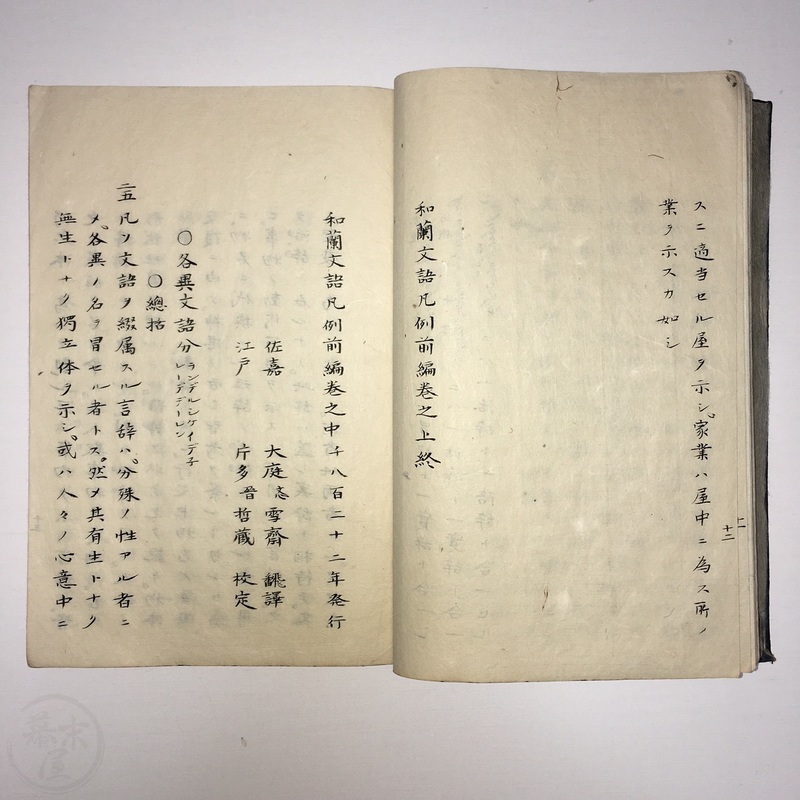 スニ適当セル屋ヲ示シ。家業ハ屋中ニ為ス所ノ
業ヲ示スカ如シ
和蘭文語凡例前編巻之上終
十二
和蘭文語凡例前編巻之中千八百二十二年発行
佐嘉 大庭 雪齋 翻譯
江戸 片多哲蔵 校定
〇各異文語分
〇總括
二五凡ソ文語ヲ綴属スル言辞ハ。分殊ノ性アル者ニ
〆。各異ノ名ヲ冒セル者トス。然〆其有生トナク
無生トナク獨立体ヲ示シ。或ハ人々ノ心意中ニ
幕末屋